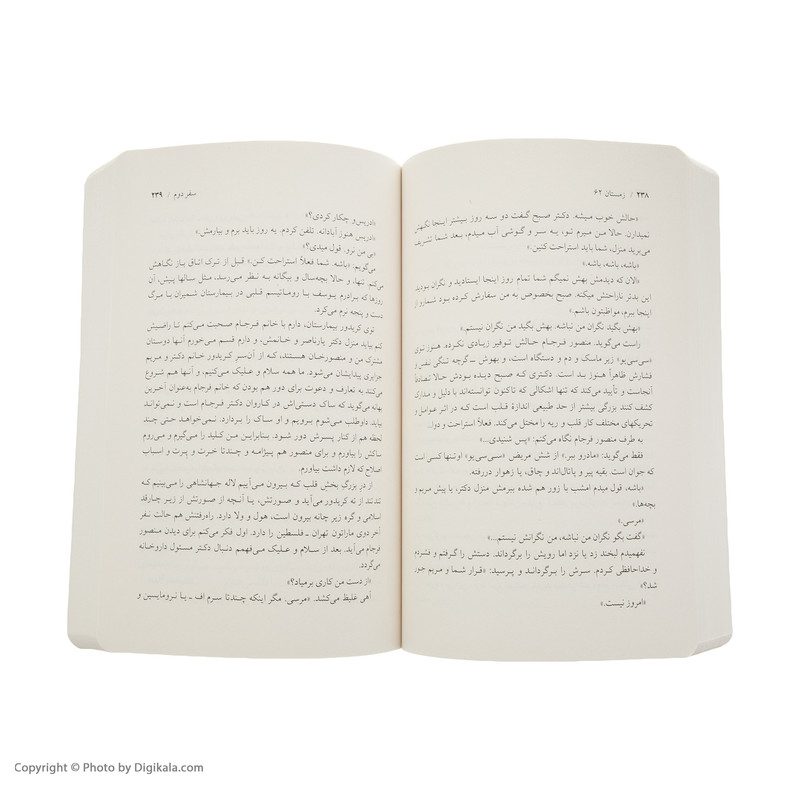 ۲۳۸ / زمستان ۶۲
«حالش خوب میشه. دکتر صبح گفت دو سه روز بیشتر اینجا نگهش
نمیدارن. حالا من میرم تو، یه سر و گوشی آب میدم، بعد شما تشریف
می‌برید منزل، شما باید استراحت کنین.»
«باشه، باشه، باشه.»
«الان که دیدمش بهش نمیگم شما تمام روز اینجا ایستادید و نگران بودید.
این بدتر ناراحتش میکنه. صبح بخصوص به من سفارش کرده بود شما رو از
اینجا ببرم، مواظبتون باشم.»
«بهش بگید من نگران نباشه. بهش بگید من نگران نیستم.»
راست می‌گوید. منصور فرجام حالش توفیر زیادی نکرده. هنوز توی
«سی‌سی‌یو» زیر ماسک و دم و دستگاه است، و بهوش ـ گرچه تنگی نفس و
فشارش ظاهراً هنوز بد است. دکتری که صبح دیده بودش حالا تصادفاً
آنجاست و تأیید می‌کند که تنها اشکالی که تاکنون توانسته‌اند با دلیل و مدارک
کشف کنند بزرگی بیشتر از حد طبیعی اندازهٔ قلب است که در اثر عوامل و
تحریکهای مختلف کار قلب و ریه را مختل می‌کند. فعلاً استراحت و دوا...
به طرف منصور فرجام نگاه می‌کنم: «پس شنیدی...»
فقط می‌گوید: «مادرو ببر.» از شش مریض «سی‌سی‌یو» او تنها کسی است
که جوان است. بقیه پیر و پاتال‌اند و چاق، یا زهوار دررفته.
«باشه، قول میدم امشب با زور هم شده ببرمش منزل دکتر، یا پیش مریم و
بچه‌ها.»
«مرسی.»
«گفت بگو نگران من نباشه، من نگرانش نیستم...»
نفهمیدم لبخند زد یا نزد اما رویش را برگرداند. دستش را گرفتم و فشردم
و خداحافظی کردم. سرش را برگرداند و پرسید: «قرار شما و مریم جور
شد؟»
«امروز نیست.»
سفر دوم / ۲۳۹
«ادریس و چکار کردی؟»
«ادریس هنوز آبادانه. تلفن کردم. یه روز باید برم و بیارمش.»
«بی من نرو. قول میدی؟»
می‌گویم: «باشه. شما فعلاً استراحت کن.» قبل از ترک اتاق باز نگاهش
می‌کنم. تنها، و حالا بچه‌سال و بیگانه به نظر می‌رسد، مثل سالها پیش، آن
روزها که برادرم یوسف با روماتیسم قلبی در بیمارستان شمیران با مرگ
دست و پنجه نرم می‌کرد.
توی کریدور بیمارستان، دارم با خانم فرجام صحبت می‌کنم تا راضیش
کم بیاد منزل دکتر یارناصر و خانمش، و دارم قسم می‌خورم آنها دوستان
مشترک من و منصورخان هستند، که از آن‌سر کریدور خانم دکتر و مریم
جزایری پیدایشان می‌شود. ما همه سلام و علیک می‌کنیم، و آنها هم شروع
می‌کنند به تعارف و دعوت برای دور هم بودن که خانم فرجام به‌عنوان آخرین
بهانه می‌گوید که ساک دستی‌اش در کاروان دکتر فرجام است و نمی‌تواند
بیاید. داوطلب می‌شوم برویم و او ساک را بردارد. نمی‌خواهد حتی چند
لحظه هم از کنار پسرش دور شود. بنابراین من کلید را می‌گیرم و می‌روم
ساکش را بیاورم و برای منصور هم پیژامه و چندتا خرت و پرت و اسباب
اصلاح که لازم داشت بیاورم.
از در بزرگ بخش قلب که بیرون می‌آییم لاله جهانشاهی را می‌بینیم که
تند تند از ته کریدور می‌آید و صورتش، یا آنچه از صورتش از زیر چارقد
اسلامی و گره زیر چانه بیرون است، هول و ولا دارد. راه‌رفتنش هم حالت نفر
آخر دوی ماراتون تهران ـ فلسطین را دارد. اول فکر می‌کنم برای دیدن منصور
فرجام می‌آید. بعد از سلام و علیک می‌فهمم دنبال دکتر مسئول داروخانه
می‌گردد.
«از دست من کاری برمیاد؟»
آهی غلیظ می‌کشد. «مرسی. مگر اینکه چندتا سرم اف ـ یا نرومایسین و
Copyright © Photo by Digikala.com